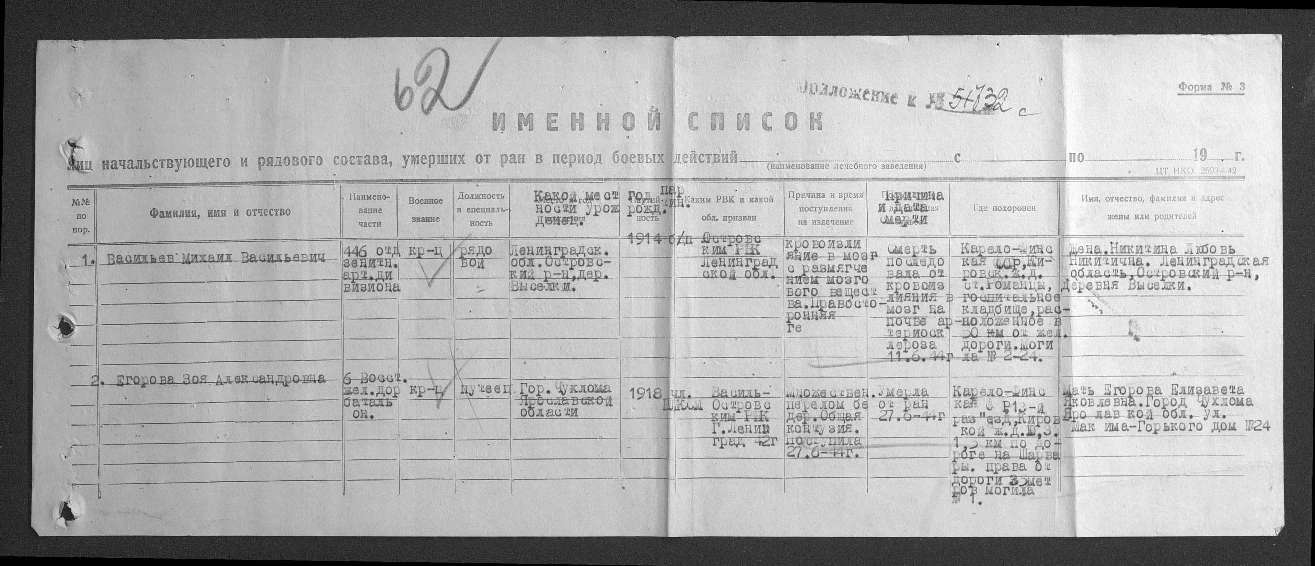 62
Приложение к № 54732 с
Форма № 3
ИМЕННОЙ СПИСОК
лиц начальствующего и рядового состава, умерших от ран в период боевых действий с по 19 г.
(наименование лечебного заведения)
№№
по
пор.
Фамилия, имя и отчество
Наимено-
вание
части
Военное
звание
Должность
и специаль-
ность
Какой мест
ности урож
денец.
Год
рожд.
пар
Каким РВК и какой
обл. призван
Причина и время
поступления
на излечение
Причина
и дата
смерти
Где похоронен
Имя, отчество, фамилия и адрес
жены или родителей
1.
Васильев Михаил Васильевич
446 отд
зенитн.
арт.ди
визиона
кр-ц
рядо
вой
Ленинградск.
обл.Островс-
кий р-н,дер.
Выселки.
1914 б/п
Островс
ким РВК
Ленинград
ской обл.
кровоизли
яние в мозг
с размягче
нием мозго
вого вещест
ва.Правосто-
ронняя
Смерть
последо
вала от
кровоиз
лияния в
мозг на
почве ар-
териоск
лероза
11.6.44г
Карело-Финс
кая ССР,Ки-
ровск.ж.д.
ст.
госпитальное
кладбище,рас-
положенное в
50 км от жел.
дороги.моги
ла № 2-24.
Жена.Никитина Любовь
Никитична. Ленинградская
область,Островский р-н,
Деревня Выселки.
2.
Егорова Зоя Александровна
6 Восст.
жел.дор
баталь
он.
кр-ц
Гор. Чухлома
Ярославской
области
1918 чл.
Василь-
Островс
ким РВК
Г.Ленин
град 42г
множествен.
перелом бе
дер.Общая
контузия.
поступила
27.6-44г.
Умерла
от ран
27.6-44г
Карело-Финс
кая
раз"езд,Киров
кой ж.д.
1,5 км по до-
роге на
права от
дороги метров могила
№ 1.
Мать Егорова Елизавета
Яковлевна.Город Чухлома
Яро лав кой обл. ул.
Мак има-Горького дом №24